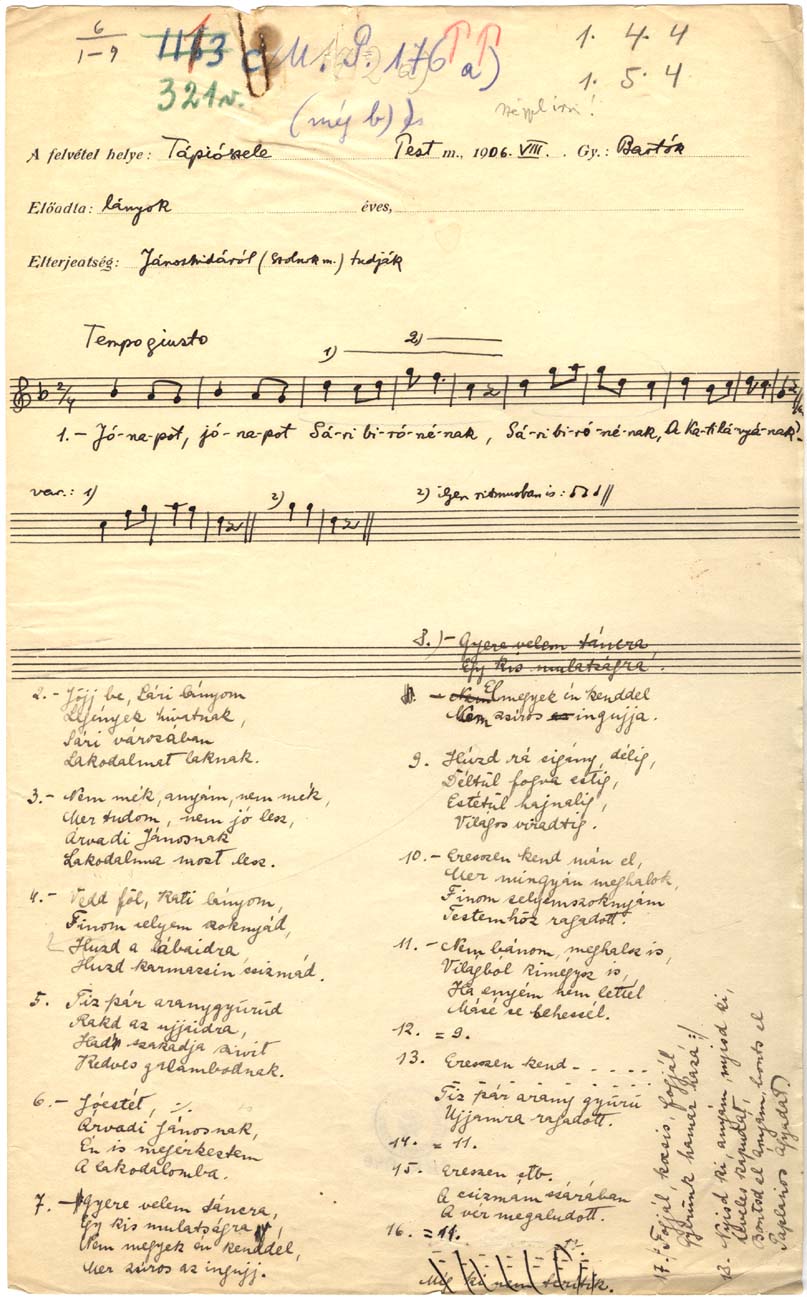 6
1-9
1. 4. 4
M. P. 176 a)
1. 5. 4
321v.
(még b) is
A felvétel helye: Tápiószele Pest m., 1906. VIII. Gy.: Bartók
Előadta: lányok éves,
Elterjedtség: Jánoshidáról (Szolnok m.) tudják
Tempo giusto
1) 2)
2/4
1.- Jó-na-pot, jó-na-pot Sá-ri bi-ró-né-nak, Sá-ri bi-ró-né-nak, A Ka-ti lá-nyá-nak.
var.: 1) 2) 2) ilyen ritmusban is:
2.- Jöjj be, Sári lányom
Legények hivatnak,
Sári városában
Lakodalmat laknak.
3.- Nem mék, anyám, nem mék,
Mer tudom, nem jó lesz,
Árvadi Jánosnak
Lakodalma most lesz.
4.- Vedd föl, Kati lányom,
Finom selyem szoknyád,
Huzd a lábaidra
Huzd karmazsin csizmád.
5. Tiz pár aranygyűrűd
Rakd az ujjaidra,
Hadd szakadja szivit
Kedves galambodnak.
6.- Jóestét, ./.
Árvadi Jánosnak,
Én is megérkeztem
A lakodalomba.
7.- Gyere velem táncra,
Egy kis mulatságra,
Nem megyek én kenddel,
Mer zsiros az ingujj.
8.)- Gyere velem táncra
Egy kis mulatságra.
- El megyek én kenddel
Nem zsiros ingujja.
9. Húzd rá cigány, délig,
Déltül fogva estig,
Estétül hajnalig,
Világos viradtig.
10.- Ereszen kend mán el,
Mer mingyán meghalok,
Finom selyemszoknyám
Testemhöz ragadott.
11.- Nem bánom, meghalsz is,
Világból kimégysz is,
Ha enyém nem lettél
Másé se lehessél.
12. = 9.
13. Ereszen kend - - - - -
Tiz pár arany gyűrű
Ujjamra ragadott.
14. = 11.
15. Ereszen stb.
A csizmám szárában
A vér megaludott.
16. = 11.
17. Fogjál kocsis, fogjál,
Gyerünk hamar haza :/
18. Nyisd ki, anyám, nyisd ki,
Leveles kapudat,
Bontsd el anyám, bonts el
Paplanos ágyadat.